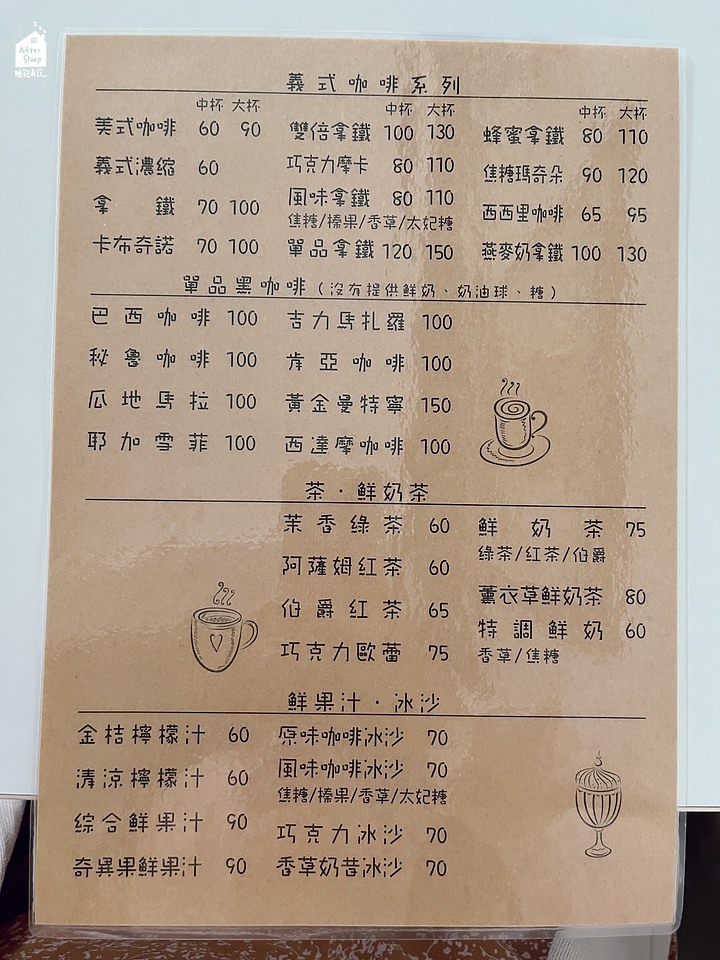 After
Sleep
睡飽再說
義式咖啡系列
中杯 大杯
美式咖啡 60 90
義式濃縮 60
拿鐵 70 100
卡布奇諾 70 100
中杯 大杯
雙倍拿鐵 100 130
巧克力摩卡 80 110
風味拿鐵 80 110
焦糖/榛果/香草/太妃糖
單品拿鐵 120 150
中杯 大杯
蜂蜜拿鐵 80 110
焦糖瑪奇朵 90 120
西西里咖啡 65 95
燕麥奶拿鐵 100 130
單品黑咖啡(沒有提供鮮奶、奶油球、糖)
巴西咖啡 100
秘魯咖啡 100
瓜地馬拉 100
耶加雪菲 100
吉力馬扎羅 100
肯亞咖啡 100
黃金曼特寧 150
西達摩咖啡 100
茶·鮮奶茶
茉香綠茶 60
阿薩姆紅茶 60
伯爵紅茶 65
巧克力歐蕾 75
鮮奶茶 75
綠茶/紅茶/伯爵
薰衣草鮮奶茶 80
特調鮮奶 60
香草/焦糖
鮮果汁·冰沙
金桔檸檬汁 60
清涼檸檬汁 60
綜合鮮果汁 90
奇異果鮮果汁 90
原味咖啡冰沙 70
風味咖啡冰沙 70
焦糖/榛果/香草/太妃糖
巧克力冰沙 70
香草奶昔冰沙 70